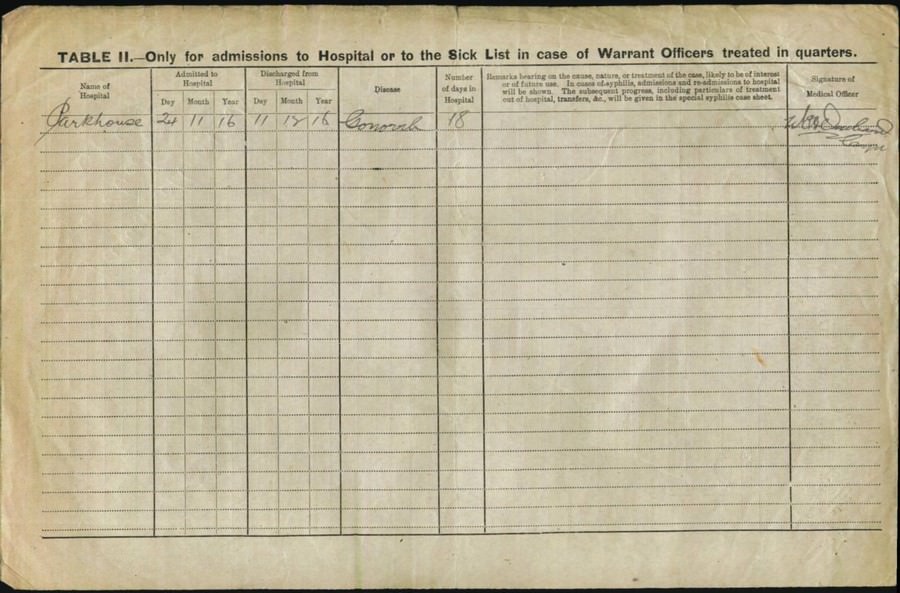 TABLE II.—Only for admissions to Hospital or to the Sick List in case of Warrant Officers treated in quarters.
Name of Hospital
Admitted to Hospital
Day Month Year
Discharged from Hospital
Day Month Year
Disease
Number of days in Hospital
Remarks bearing on the cause, nature, or treatment of the case, likely to be of interest
or of future use. In cases of syphilis, admissions and re-admissions to hospital
will be shown. The subsequent progress, including particulars of treatment
out of hospital, transfers, &c., will be given in the special syphilis case sheet.
Signature of Medical Officer
Parkhouse 24 11 16 11 12 16 18